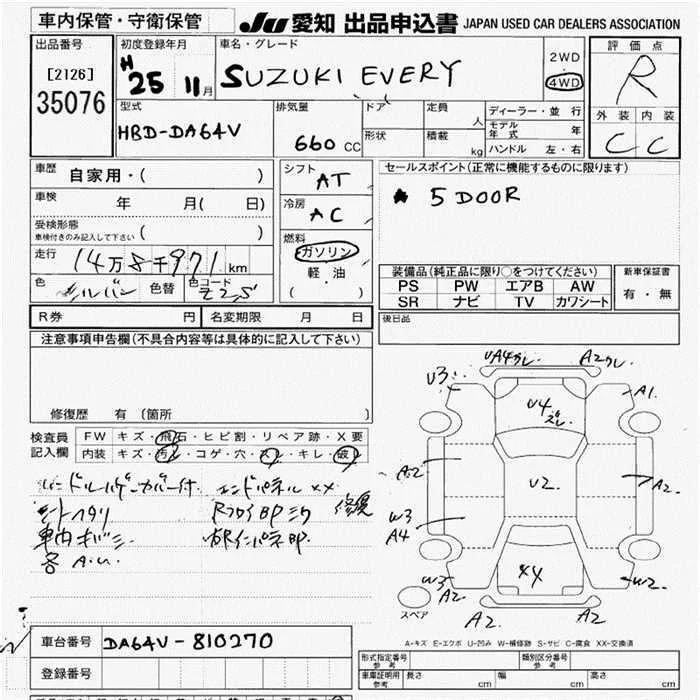 車内保管・守衛保管
JU 愛知 出品申込書 JAPAN USED CAR DEALERS ASSOCIATION
出品番号
[2126]
35076
初度登録年月
H 25 11月
車名・グレード
SUZUKI EVERY
2WD
4WD
評価点
R
外装 内装
C C
型式
HBD-DA64V
排気量
660 CC
ドア
形状
定員 人
積載 kg
ディーラー・並行
モデル年式 年
ハンドル 左・右
車歴 自家用・( )
車検 年 月( 日)
受検形態
車検付きのみ記入して下さい ( )
走行 14万8千971km
色 シルバー 色替 色コード Z2S
シフト AT
冷房 AC
燃料
ガソリン
軽油
( )
セールスポイント(正常に機能するものに限ります)
5 DOOR
装備品(純正品に限り○をつけてください)
PS PW エアB AW
SR ナビ TV カワシート
新車保証書
有・無
R券 円 名変期限 月 日
後日品
注意事項申告欄(不具合内容等は具体的に記入して下さい)
修復歴 有 (箇所 )
検査員記入欄
FW キズ・飛石・ヒビ割・リペア跡・X要
内装 キズ・汚レ・コゲ・穴・スレ・キレ・破レ
エンドパネル XX
シートヘタリ
修復
車内キバミ
各 A.U.
UA4 A2
U3 U4 A1
A2 U2 A2
W3
A4
XX
W3 W2
A2 A2 A2
スペア
A-キズ E-エクボ U-凹み W-補修跡 S-サビ C-腐食 XX-交換済
車台番号 DA64V-810270
登録番号
形式指定番号 参考
類別区分番号 参考
車庫証明用 参考 長さ cm 幅 cm 高さ cm